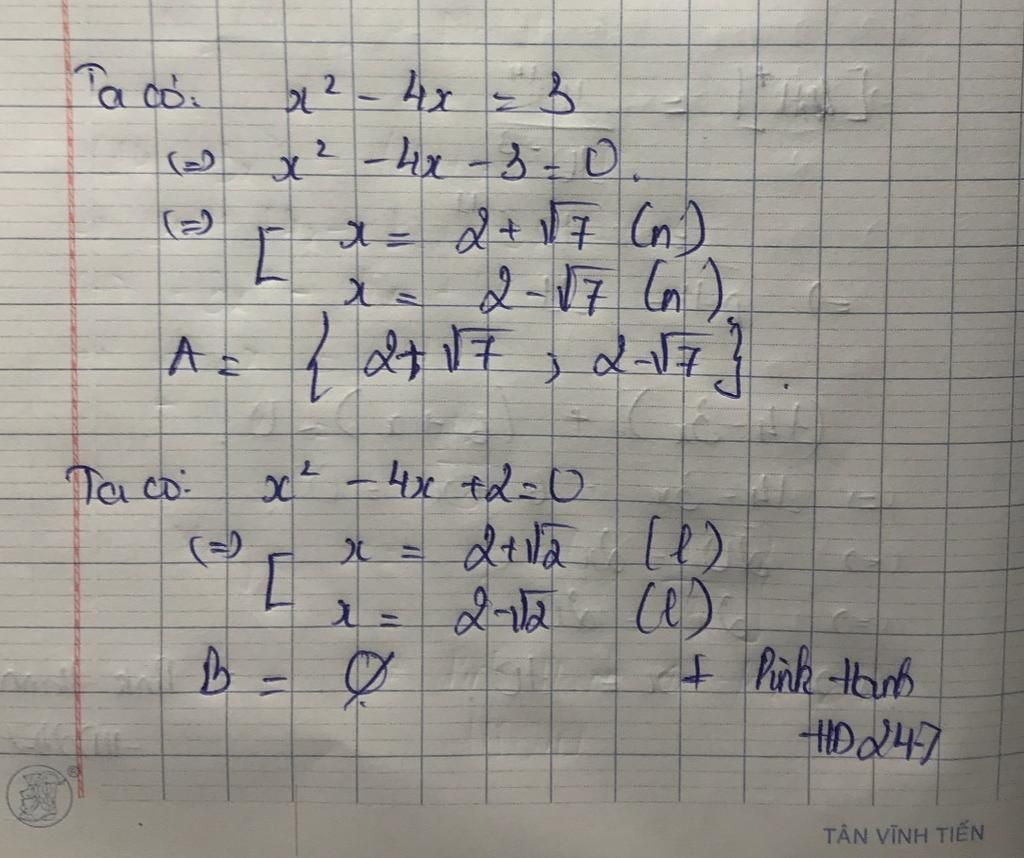 Ta có: x² - 4x = 3
(=) x² - 4x - 3 = 0.
(=) [ x = 2 + √7 (n)
x = 2 - √7 (n)
A = { 2 + √7 ; 2 - √7 } .
Ta có: x² - 4x + 2 = 0
(=) [ x = 2 + √2 (l)
x = 2 - √2 (l)
B = ∅
HD247
TÂN VĨNH TIẾN